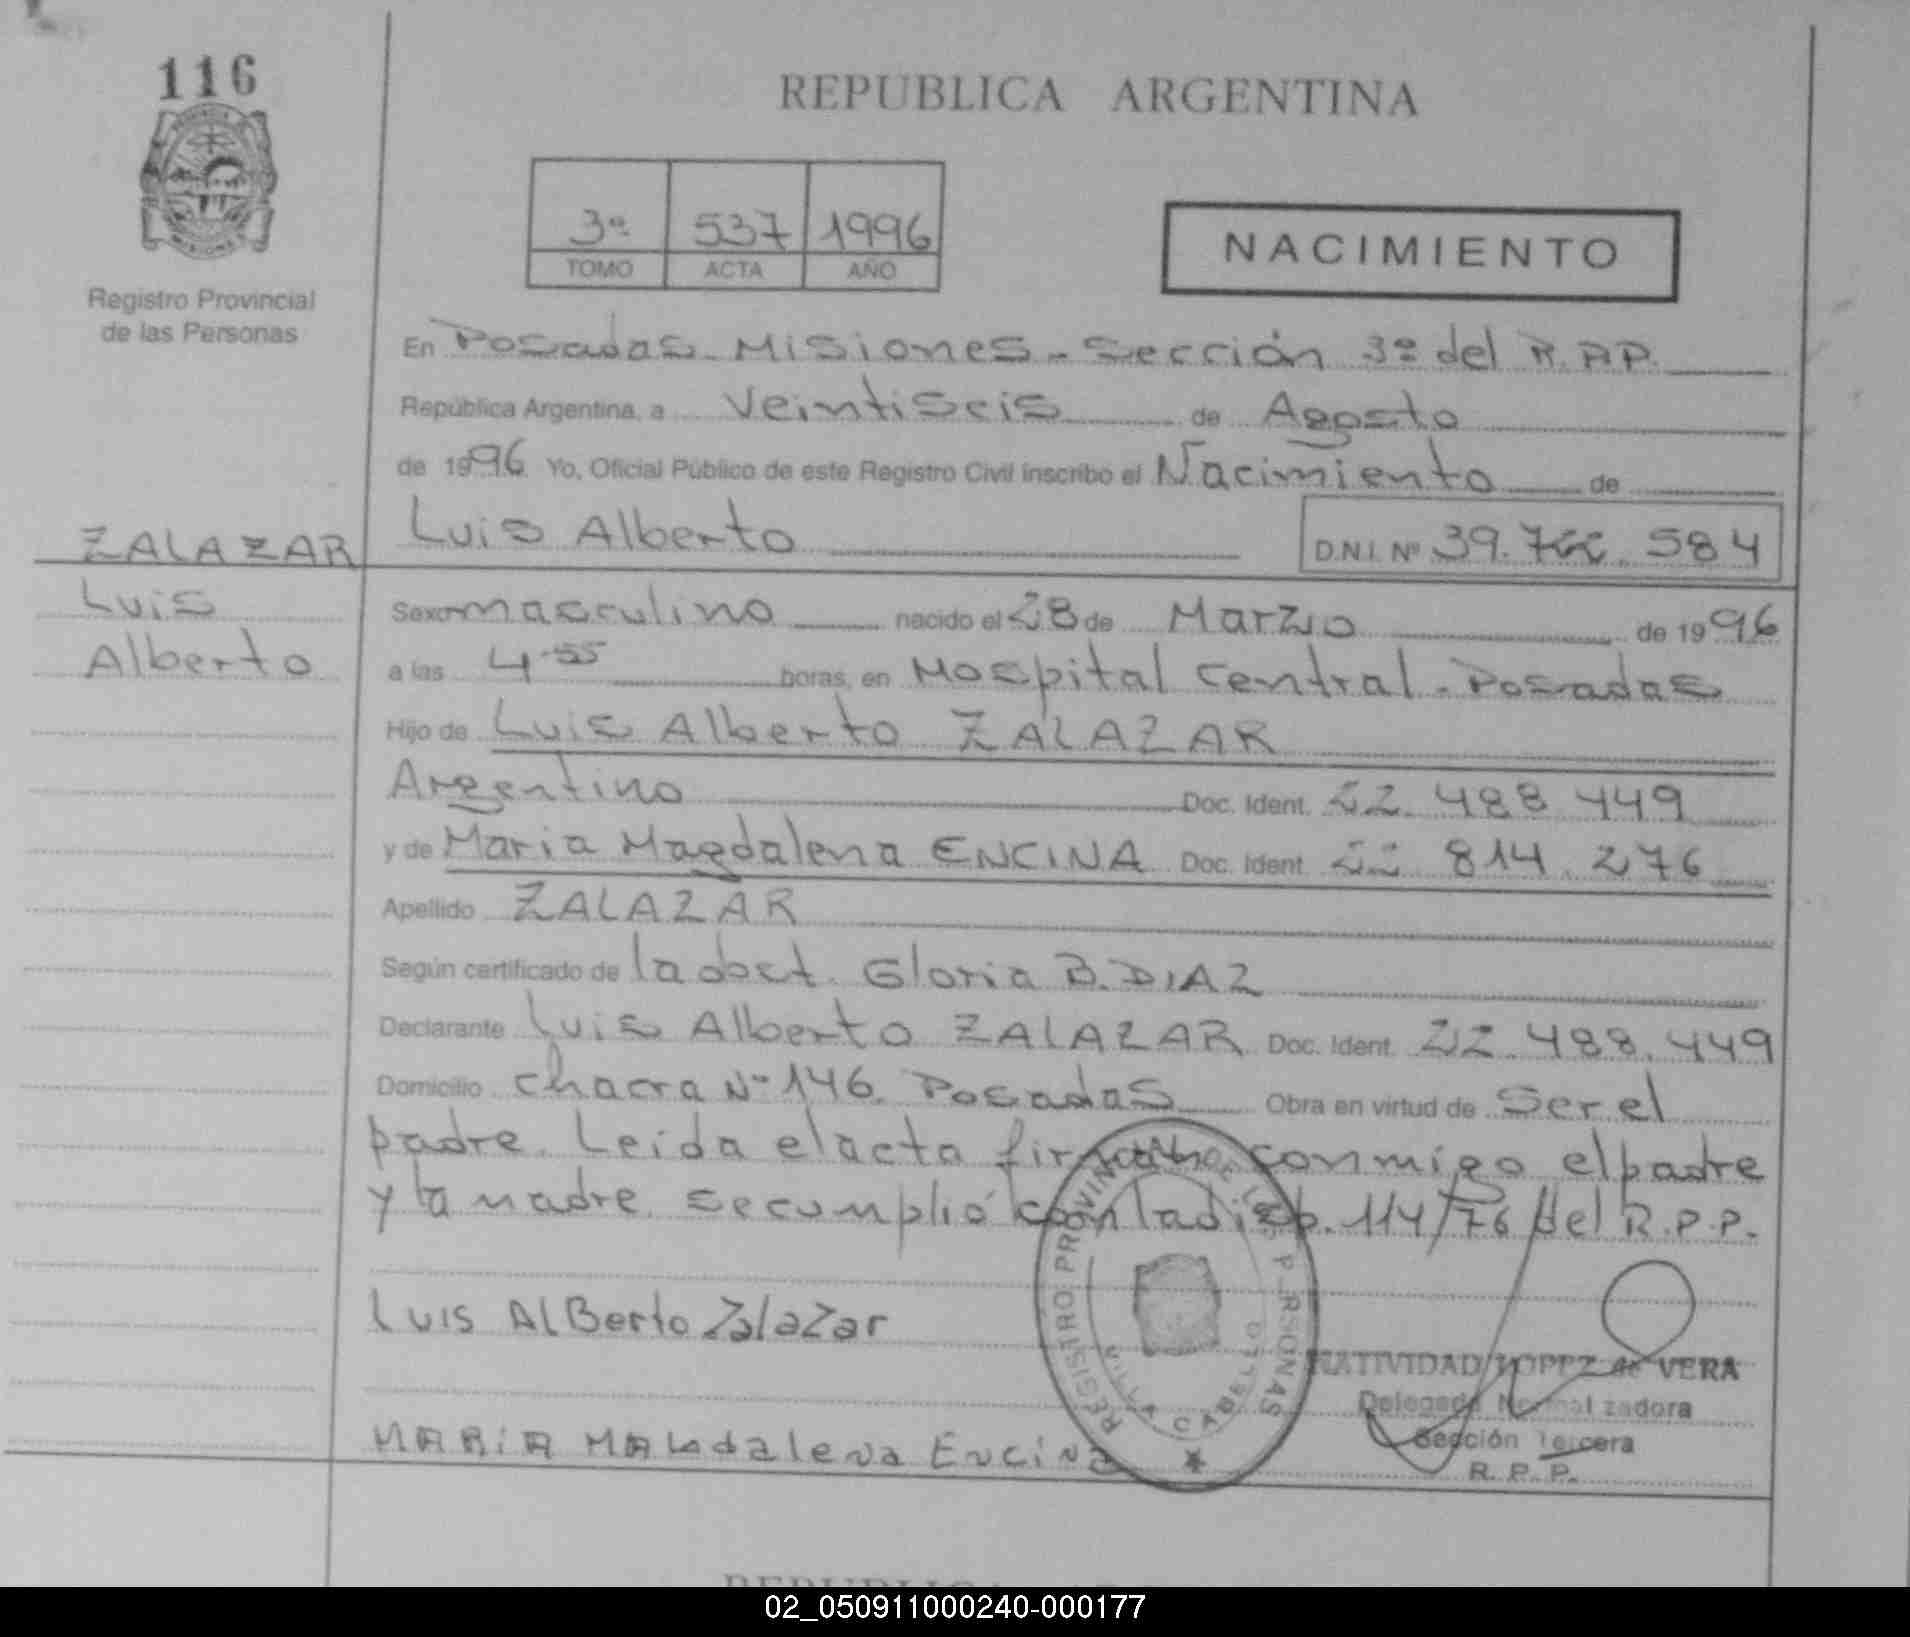 116
REPUBLICA ARGENTINA
3º 537 1996
TOMO ACTA AÑO
NACIMIENTO
Registro Provincial
de las Personas
En Posadas. Misiones. Sección 3º del R.P.P.
República Argentina, a Veintiseis de Agosto
de 1996 Yo, Oficial Público de este Registro Civil inscribo el Nacimiento de
Luis Alberto D.N.I. Nº 39. 584
ZALAZAR
Luis
Alberto
Sexo masculino nacido el 28 de Marzo de 1996
a las 4-55 horas, en Hospital Central. Posadas
Hijo de Luis Alberto ZALAZAR
Argentino Doc. Ident. 22.488.449
y de Maria Magdalena ENCINA Doc. Ident. 22.814.276
Apellido ZALAZAR
Según certificado de la obst. Gloria B. DIAZ
Declarante Luis Alberto ZALAZAR Doc. Ident. 22.488.449
Domicilio chacra Nº 146. Posadas Obra en virtud de Ser el
padre. Leida el acta firman conmigo el padre
y la madre se cumplió con la disp. 114/76 del R.P.P.
Luis AlBerto ZalaZar
MARIA MAGdalena Encina
REGISTRO PROVINCIAL DE LAS PERSONAS
VILLA CABELLO
NATIVIDAD LOPEZ de VERA
Delegada Normalizadora
Sección Tercera
R. P. P.
02_050911000240-000177